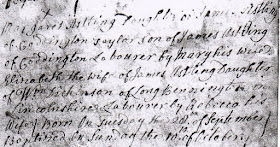 Janet Nutting Daughter of James Nutting
of Coddington Taylor son of James Nutting
of Coddington Labourer by Mary his wife
Elizabeth the wife of James Nutting Daughter
of Wm Dickenson of Long Bennington in
Lincolnshire Labourer by Rebecca his
Wife Born on Tuesday the of September
Baptized on Sunday the 10th of October